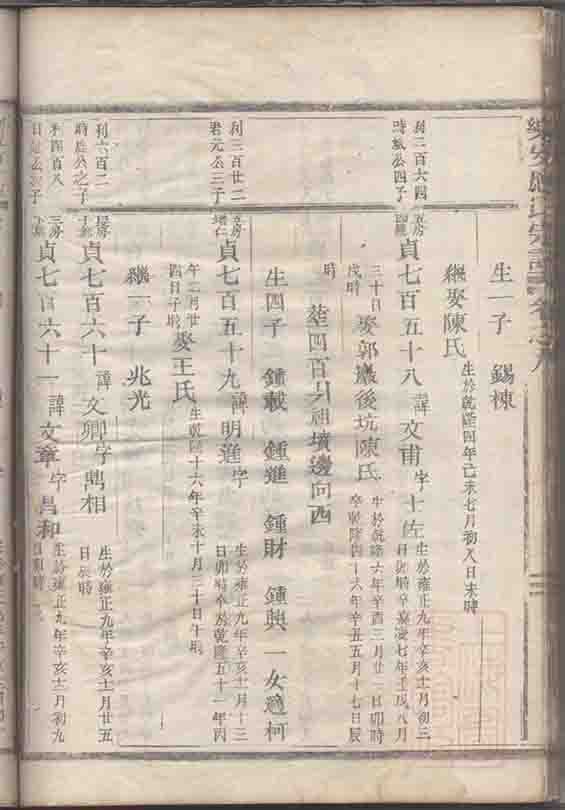 宗譜卷之九
生一子　錫棟
繼娶陳氏　生於乾隆四年己未七月初八日未時
利二百六四
公四子
五房
貞七百五十八　諱文甫　字士佐　生於雍正九年辛亥十二月初三
日卯時卒嘉慶七年壬戌八月
三十日
戌時
娶郭巖後坑陳氏　生於乾隆六年辛酉三月廿二日卯時
卒乾隆四十六年辛丑五月十七日辰
時
塟四百貝祖墳邊向西
生四子　鍾載　鍾進　鍾財　鍾興　一女適柯
利三百廿二
君元公三子
五房
貞七百五十九　諱明進　字　生於雍正九年辛亥十一月十三
日卯時卒於乾隆五十一年四
午二月廿
四日子時
娶王氏　生乾隆十六年辛未十月三十日午時
繼一子　兆光
利六百二
時公之子
房
貞七百六十　諱文卿　字鳴相　生於雍正九年辛亥十二月廿五
日辰時
利四百八
公子
三房
貞七百六十一　諱文章　字昌和　生於雍正九年辛亥十二月初九
日時